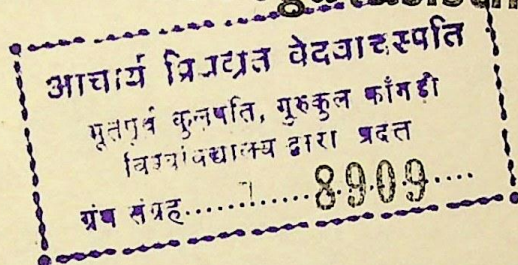 आचार्य प्रियव्रत वेदवाचस्पति
भूतपूर्व कुलपति, गुरुकुल काँगड़ी
विश्वविद्यालय द्वारा प्रदत्त
ग्रंथ संग्रह..............8909....